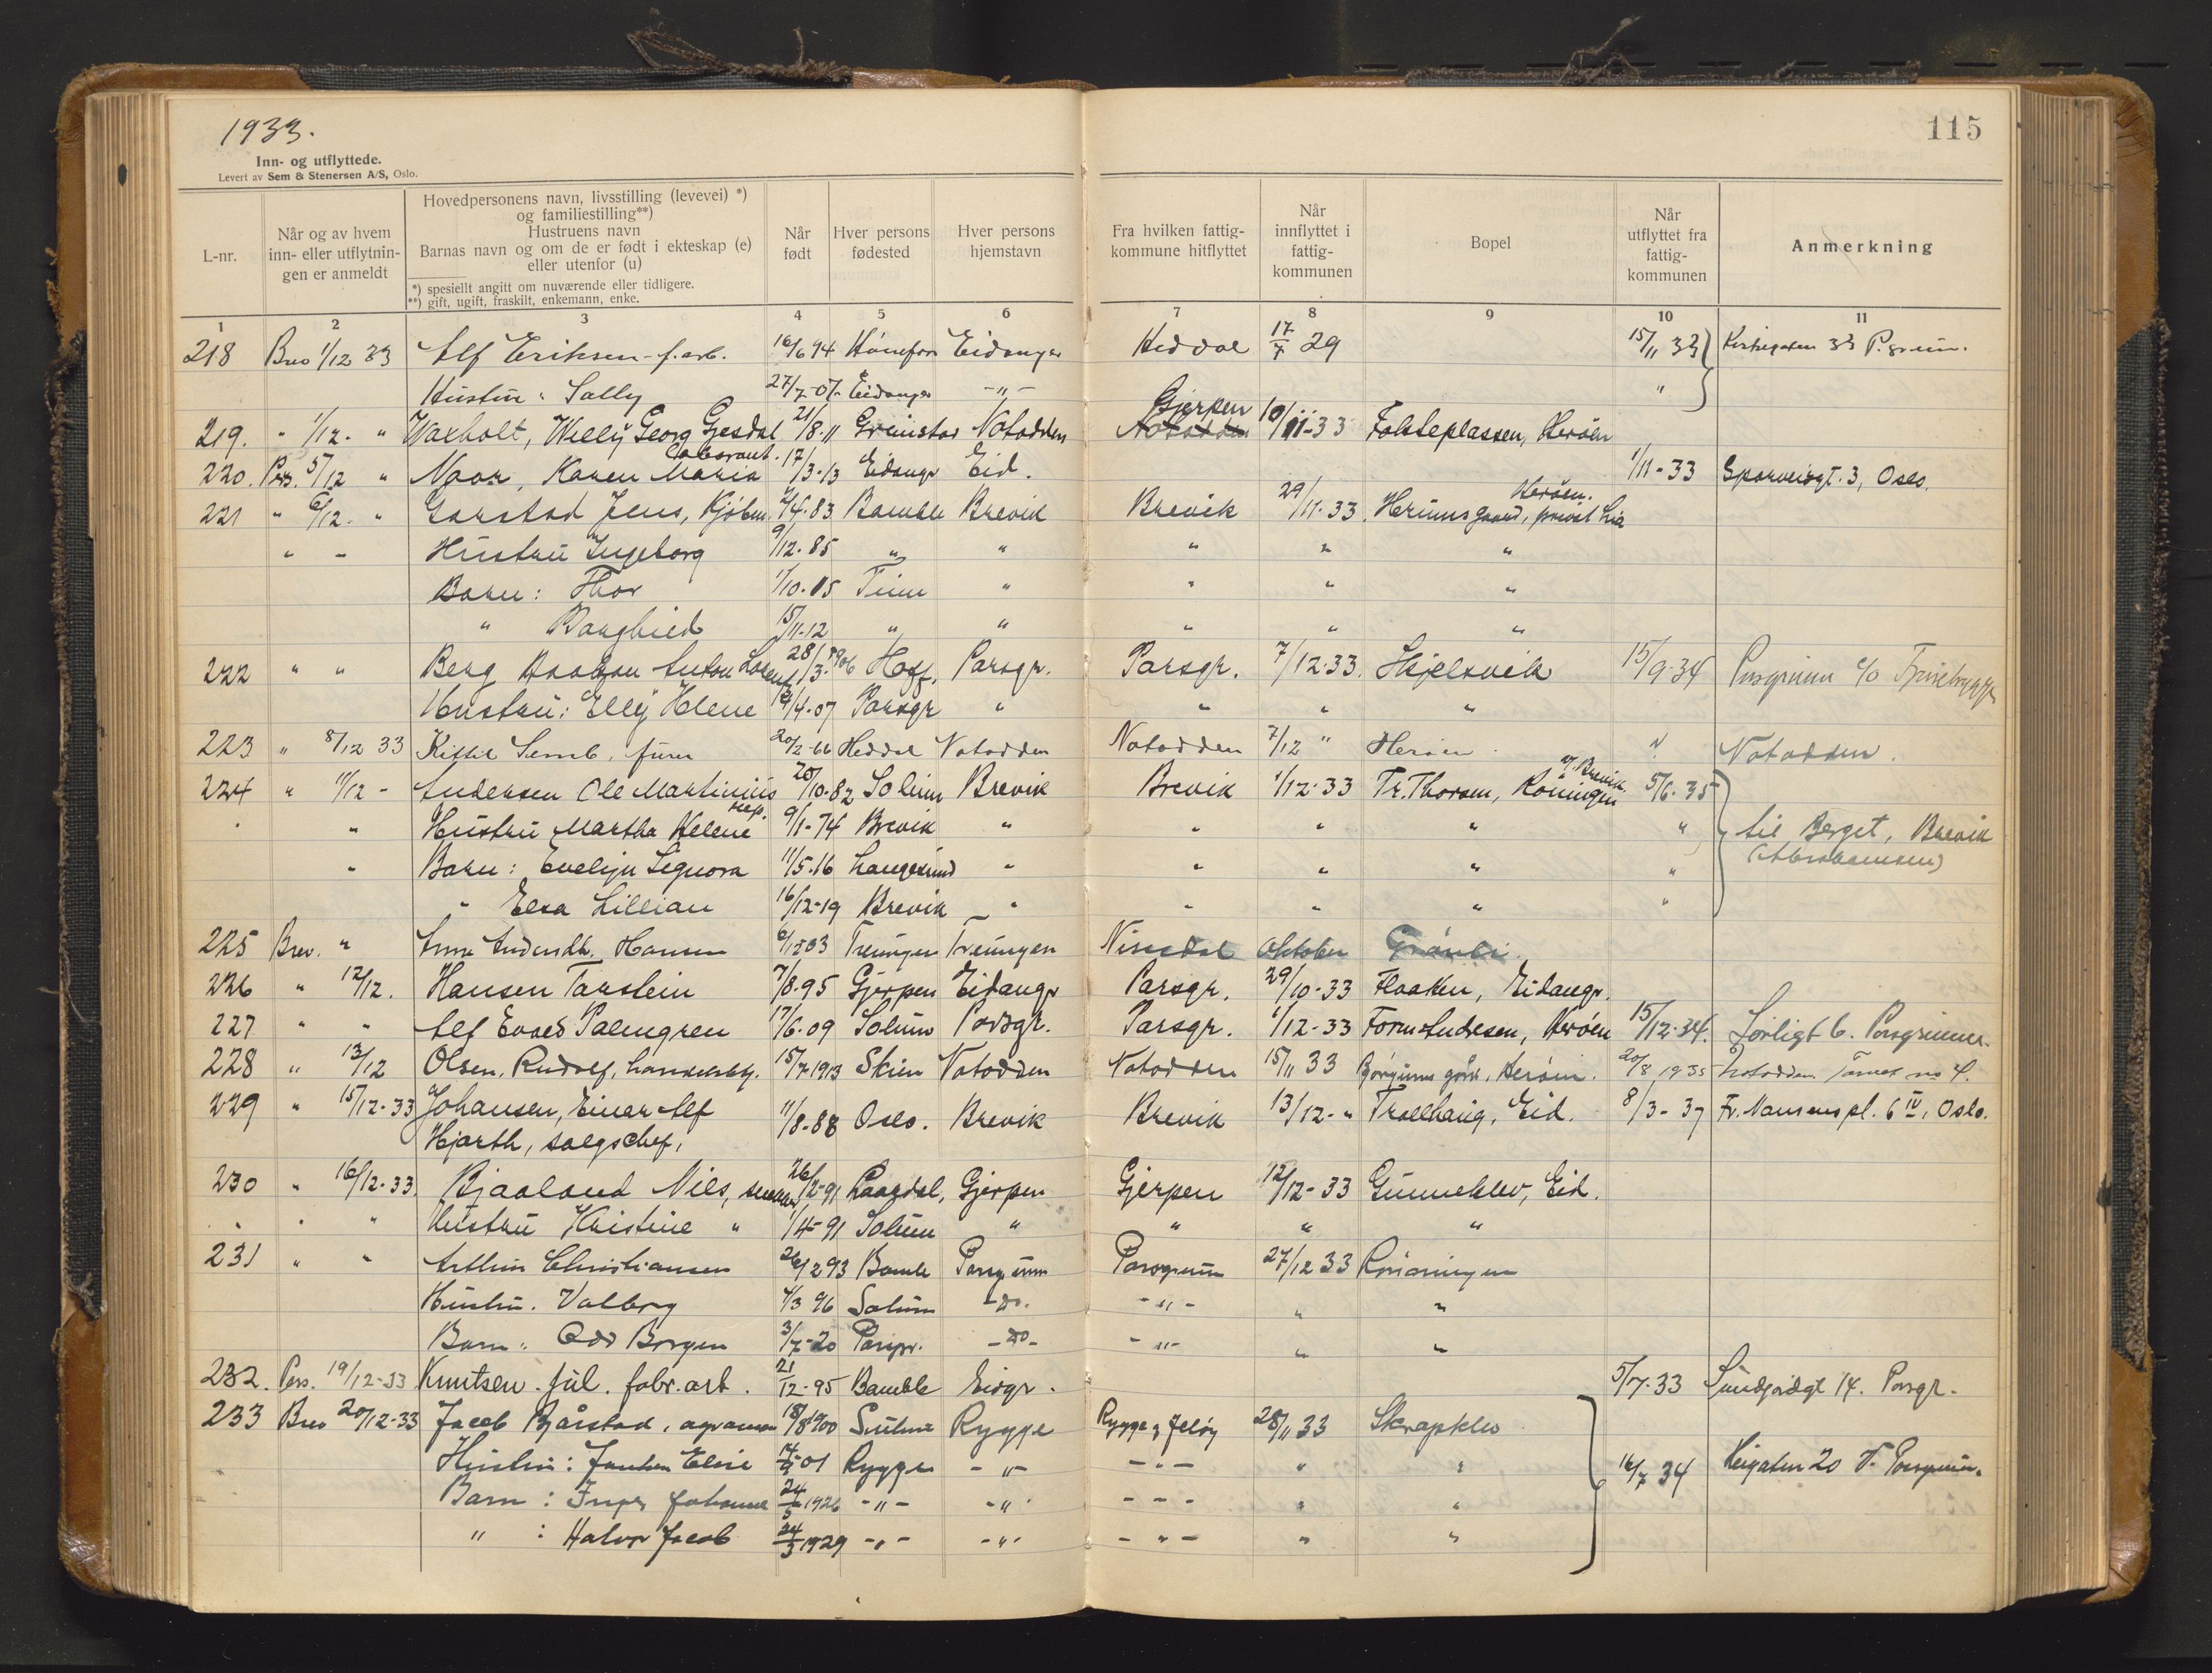 1933.
115
Inn- og utflyttede.
Levert av Sem & Stenersen A/S, Oslo.
L-nr.
Når og av hvem inn- eller utflytnin-gen er anmeldt
Hovedpersonens navn, livsstilling (levevei) *)
og familiestilling**)
Hustruens navn
Barnas navn og om de er født i ekteskap (e)
eller utenfor (u)
*) spesiellt angitt om nuværende eller tidligere.
**) gift, ugift, fraskilt, enkemann, enke.
Når født
Hver persons fødested
Hver persons hjemstavn
Fra hvilken fattig-kommune hitflyttet
Når innflyttet i fattig-kommunen
Bopel
Når utflyttet fra fattig-kommunen
Anmerkning
1 2 3 4 5 6 7 8 9 10 11
218 Brev 1/12 33 Alf Eriksen - f. arb. 16/6 94 Hönefos Eidanger Heddal 17/7 29 15/11 33 Kirkegaten 33 P.grunn.
Hustru: Sally 27/7-07 Eidanger -"- "
219. " 1/12 - " Waxholt, Willy Georg Gjesdal 21/8-11 Grimstad Notodden Gjerpen Notodden 10/11-33 Folsteplassen, Herøen
220. Pers. 5/12 " Noor, Karen Maria 17/3-13 Eidangr Eid. 1/11-33 Sporveisgt. 3, Oslo.
221 " 6/12. " Garstad Jens, Kjöbm. 2/4-83 Bamble Brevik Brevik 29/11-33. Herøen.
" - Hustru Ingeborg 9/12-85 " " " " "
Barn: Thor 1/10-15 Tinn " " " "
" Ranghild 15/11-12 " " " " "
222 " " Berg Haakon Anton 28/3-1906 Hoff, Porsgr. Porsgr. 7/12-33. Skjelsvik 15/9-34 Porsgrunn c/o
Hustru: Elly Helene /4-07 Porsgr " " " "
223 " 8/12 33 Kittil Semb, 20/2-66 Heddal Notodden Notodden 7/12 " Herøen " Notodden.
224 " 11/12 - Andersen Ole Martinius 20/10-82 Solum Brevik Brevik 1/12-33 Tr. Thorsen, Röningen pr. Brevik 5/6-35
" Hustru Martha Helene 9/1-74 Brevik " " " " " til Berget, Brevik
" Barn: Evelyn Signora 11/5-16 Langesund " " " " " (Abrahamsen)
" Elsa Lillian 16/12-19 Brevik " " " " "
225 Brev. " Anna Hansen 6/12-03 Treungen Treungen Nissedal oktober Grönli
226 " 12/12. Hansen Torstein 7/8-95 Gjerpen Eidangr Porsgr. 29/10-33 Flaaten, Eidangr.
227 " " Alf Evald Palmgren 17/6-09 Solum Porsgr. Porsgr. 1/12-33 Herøen 15/12-34. Porsgrunn.
228 " 13/12 Olsen, Rudolf, 15/7 1913 Skien Notodden Notodden 15/11 33 Herøen. 20/8 1935 Notodden
229 " 15/12-33 Johansen, Einar Alf 11/8-88 Oslo. Brevik Brevik 13/12-" Trollhaug, Eid. 8/3-37 Fr. Nansens pl. 6 IV, Oslo.
Hjorth, salgschef,
230 " 16/12-33. Bjaaland Nils, 26/2-91 Laardal, Gjerpen Gjerpen 12/12-33 Gunneklev, Eid.
" " " Hustru Kristine " 1/4-91 Solum " " " "
231 " " Arthur Christiansen 26/2 93 Bamle Porsgrunn Porsgrunn 27/12 33
Hustru. Valborg 4/3 96 Solum -do. -"- " "
Barn: Odd Borgen 3/7-20 Porsgr. -do- -"- " "
232. Pers. 19/12-33 Knutsen. Jul. fabr. arb. 21/12-95 Bamble Eidgr. 5/7-33 14. Porsgr.
233 Brev 20/12-33 Jacob Bjårstad, 18/8 1900 Rygge Rygge 28/11 33 Skrapklev
Hustru: Elise 14/9 01 Rygge -"- -"- " " 16/7 34 20 V. Porsgrunn.
Barn: Inger Johanne 24/5 1926 -"- -"- - - - " "
" : Halvor Jacob 24/3 1929 -"- -"- -"- " "